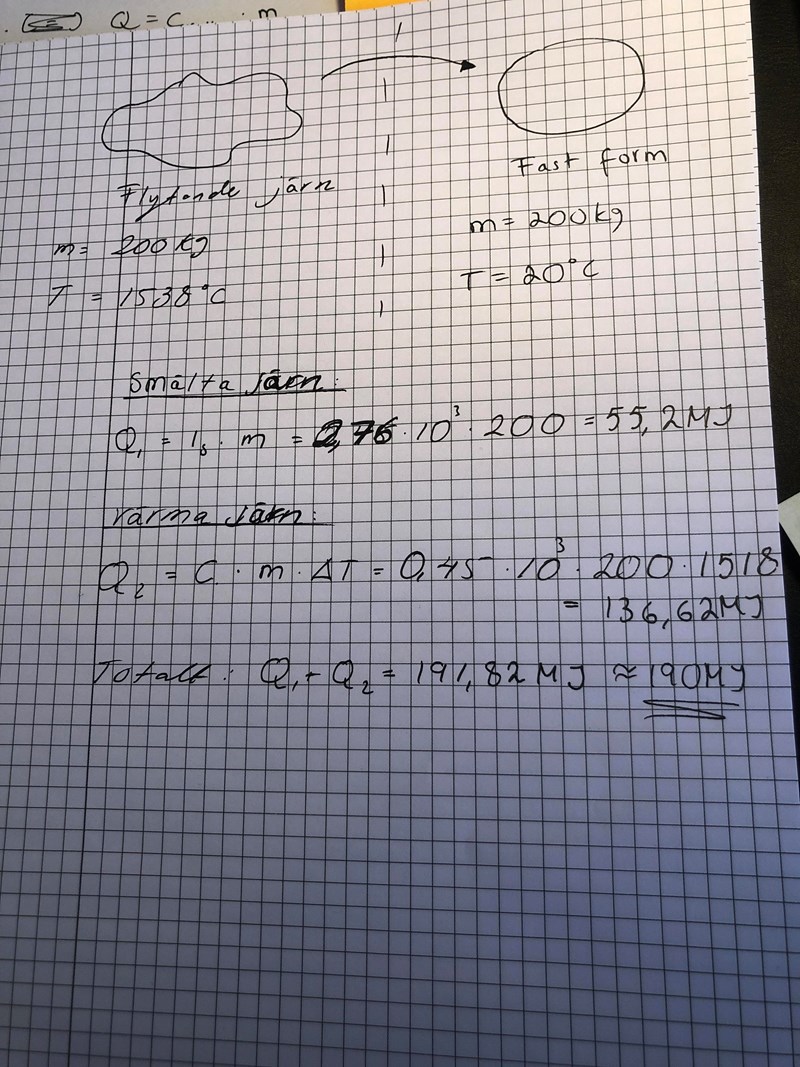 Q = C .... · m
Flytande järn
m = 200 kg
T = 1538°C
Fast form
m = 200 kg
T = 20°C
Smälta järn:
Q₁ = lₛ · m = 2,76 · 10³ · 200 = 55,2 MJ
Värma järn:
Q₂ = C · m · ΔT = 0,45 · 10³ · 200 · 1518
= 136,62 MJ
Totalt: Q₁ + Q₂ = 191,82 MJ ≈ 190 MJ